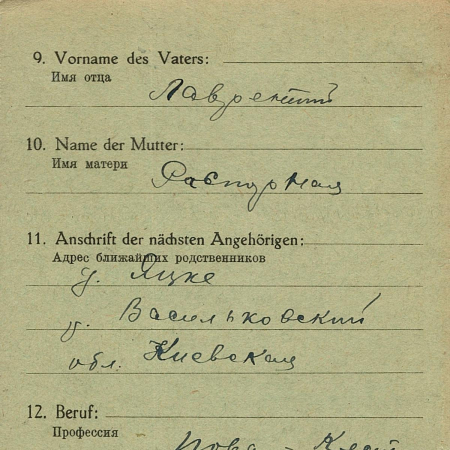 9. Vorname des Vaters:
Имя отца
Лаврентий
10. Name der Mutter:
Имя матери
11. Anschrift der nächsten Angehörigen:
Адрес ближайших родственников
д. Яцке
р. Васильковский
обл. Киевская
12. Beruf:
Профессия